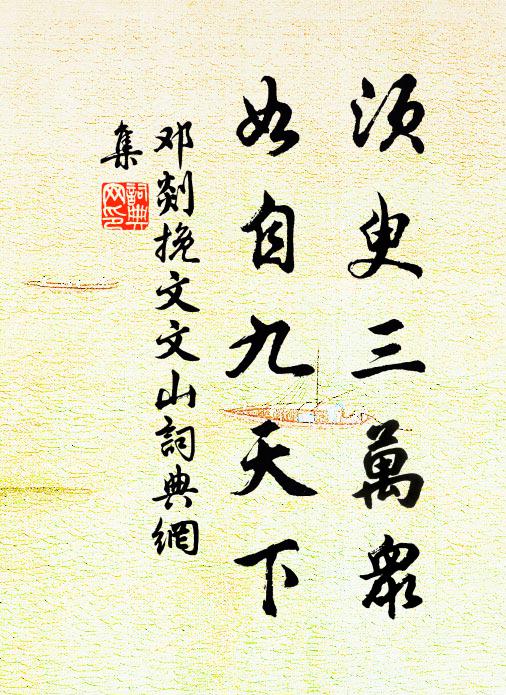 須臾三萬衆
如自九天下
邓剡挽文文山詞典網
集
詞典
网印